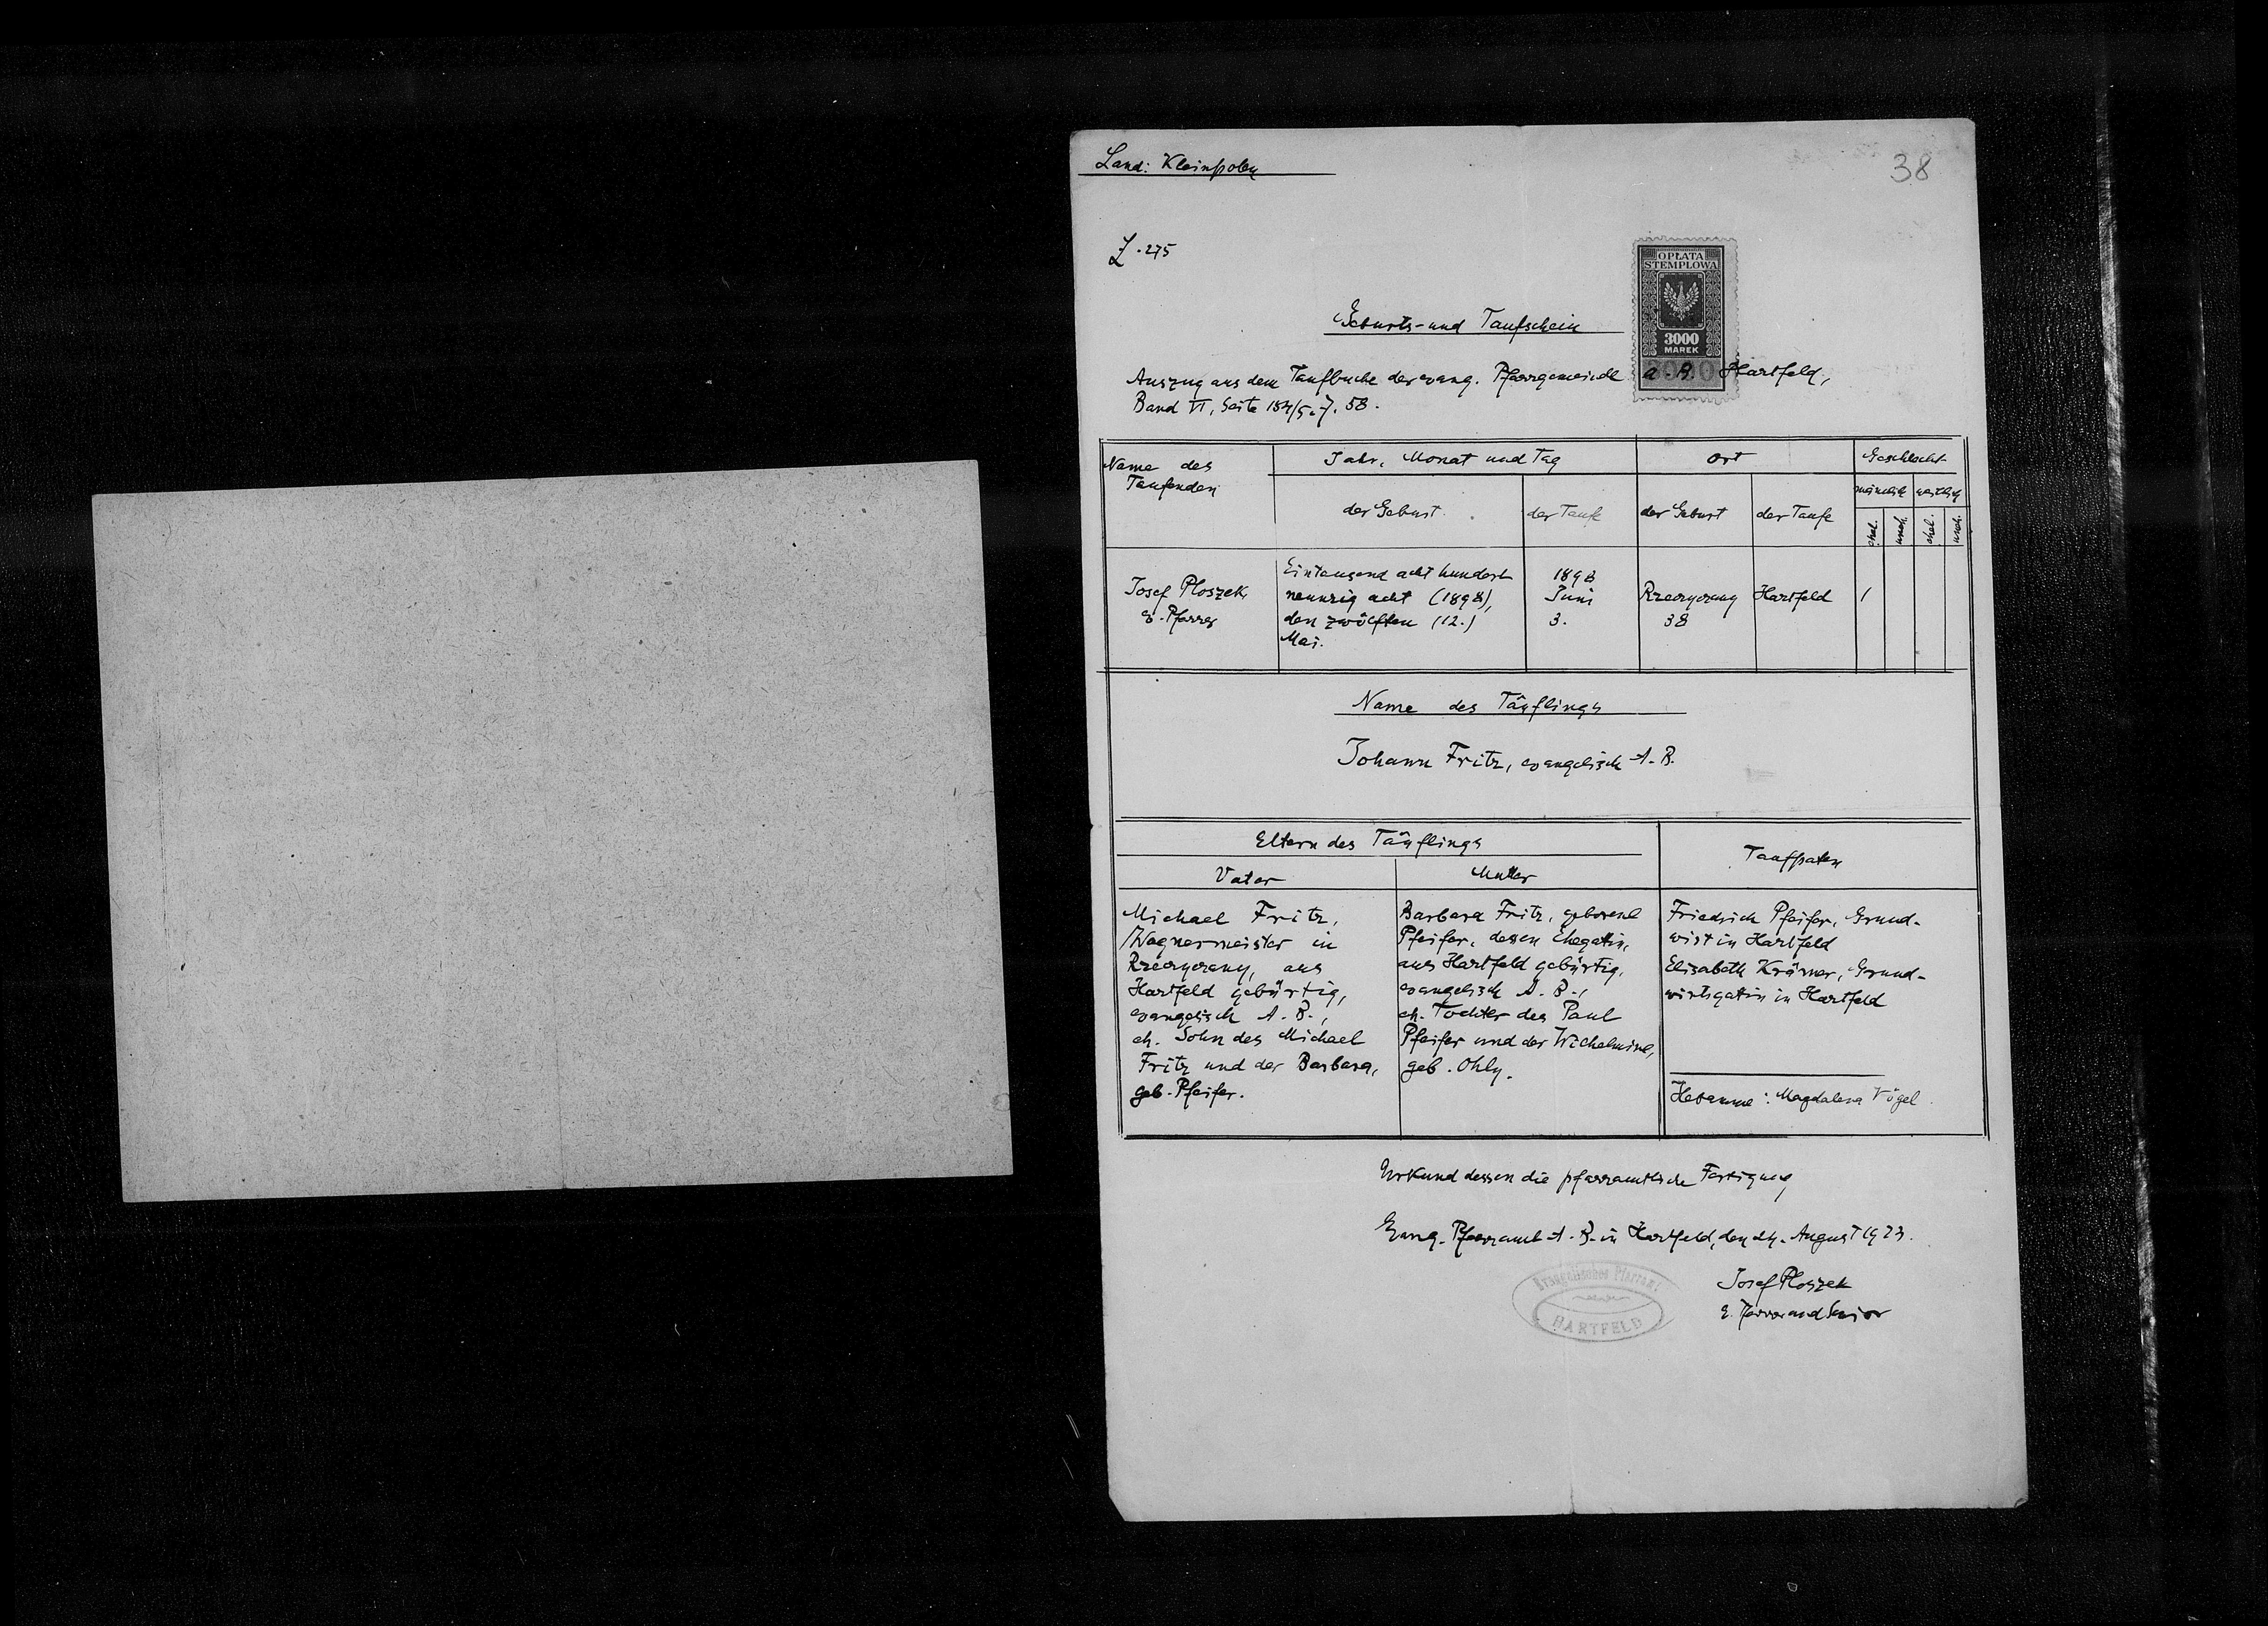 Land: Kleinpolen
38
Z. 275
OPŁATA
STEMPLOWA
3000
MAREK
Geburts- und Taufschein
Auszug aus dem Taufbuche der evang. Pfarrgemeinde A. B. Hartfeld,
Band VI, Seite 184/5. Z. 58.
Name des Taufenden
Jahr, Monat und Tag
Ort
Geschlecht
der Geburt
der Taufe
der Geburt
der Taufe
männlich
weiblich
ehel.
uneh.
ehel.
uneh.
Josef Ploszek,
e. Pfarrer
Eintausend acht hundert
neunzig acht (1898),
den zwölften (12.)
Mai.
1898
Juni
3.
Rzeczyczany
38
Hartfeld
1
Name des Täuflings
Johann Fritz, evangelisch A. B.
Eltern des Täuflings
Taufpaten
Vater
Mutter
Michael Fritz,
Wagnermeister in
Rzeczyczany, aus
Hartfeld gebürtig,
evangelisch A. B.,
eh. Sohn des Michael
Fritz und der Barbara,
geb. Pfeifer.
Barbara Fritz, geborene
Pfeifer, dessen Ehegattin,
aus Hartfeld gebürtig,
evangelisch A. B.,
eh. Tochter des Paul
Pfeifer und der Wilhelmine,
geb. Ohly.
Friedrich Pfeifer, Grund-
wirt in Hartfeld
Elisabeth Krämer, Grund-
wirtsgattin in Hartfeld
Hebamme: Magdalena Vögel.
Urkund dessen die pfarramtliche Fertigung
Evang. Pfarramt A. B. in Hartfeld, den 24. August 1923.
Evangelisches Pfarramt
HARTFELD
Josef Ploszek
e. Pfarrer und Senior